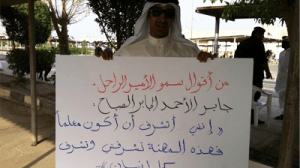 من أقوال سمو الأمير الراحل
جابر الأحمد الجابر الصباح :
" إنني أتشرف أن أكون معلماً
فهذه المهنة تشرفني وتشرف
كل إنسان "